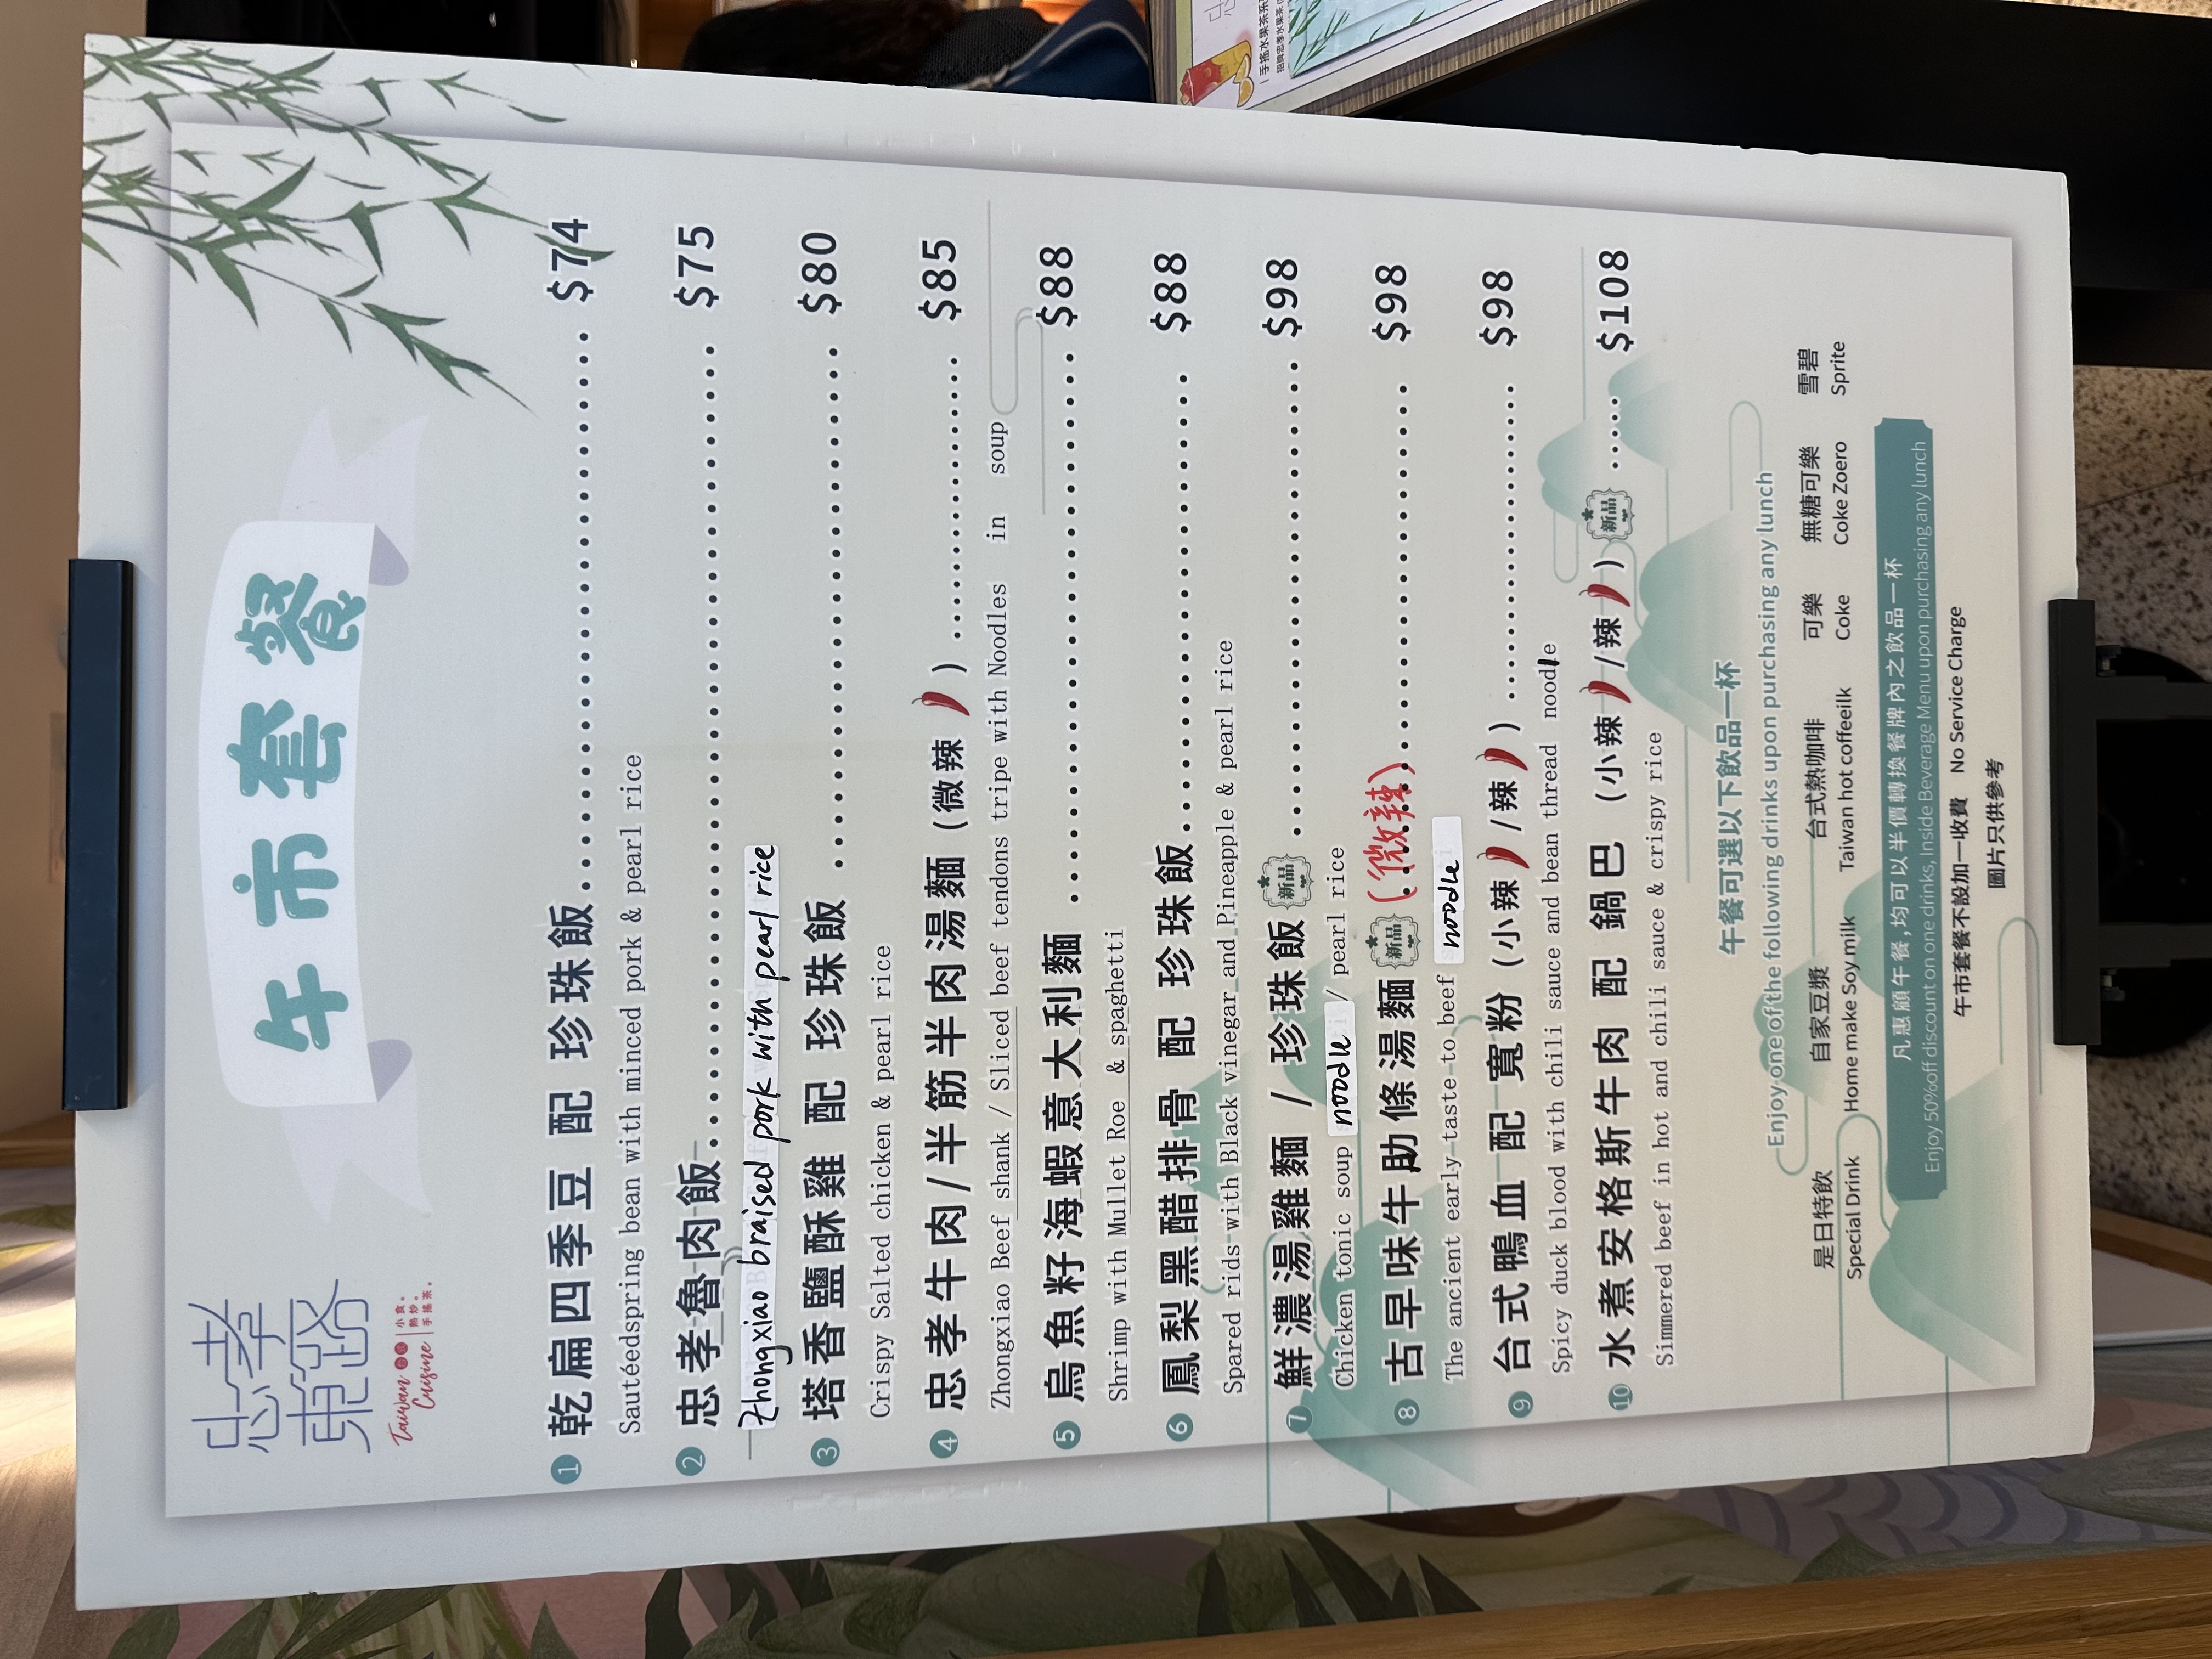 忠孝
東路
Taiwan Cuisine
小食。
熱炒。
手搖茶。
午市套餐
1 乾扁四季豆 配 珍珠飯 $74
Sautéedspring bean with minced pork & pearl rice
2 忠孝魯肉飯 $75
Zhongxiao braised pork with pearl rice
3 塔香鹽酥雞 配 珍珠飯 $80
Crispy Salted chicken & pearl rice
4 忠孝牛肉/半筋半肉湯麵 (微辣) $85
Zhongxiao Beef shank / Sliced beef tendons tripe with Noodles in soup
5 烏魚籽海蝦意大利麵 $88
Shrimp with Mullet Roe & spaghetti
6 鳳梨黑醋排骨 配 珍珠飯 $88
Spared rids with Black vinegar and Pineapple & pearl rice
7 鮮濃湯雞麵 / 珍珠飯 新品 $98
Chicken tonic soup noodle / pearl rice
8 古早味牛肋條湯麵 新品 (微辣) $98
The ancient early-taste-to beef noodle
9 台式鴨血 配 寬粉 (小辣/辣) $98
Spicy duck blood with chili sauce and bean thread noodle
10 水煮安格斯牛肉 配 鍋巴 (小辣/辣) 新品 $108
Simmered beef in hot and chili sauce & crispy rice
午餐可選以下飲品一杯
Enjoy one of the following drinks upon purchasing any lunch
是日特飲 自家豆漿 台式熱咖啡 可樂 無糖可樂 雪碧
Special Drink Home make Soy milk Taiwan hot coffeeilk Coke Coke Zoero Sprite
凡惠顧午餐,均可以半價轉換餐牌內之飲品一杯
Enjoy 50%off discount on one drinks,Inside Beverage Menu upon purchasing any lunch
午市套餐不設加一收費 No Service Charge
圖片只供參考